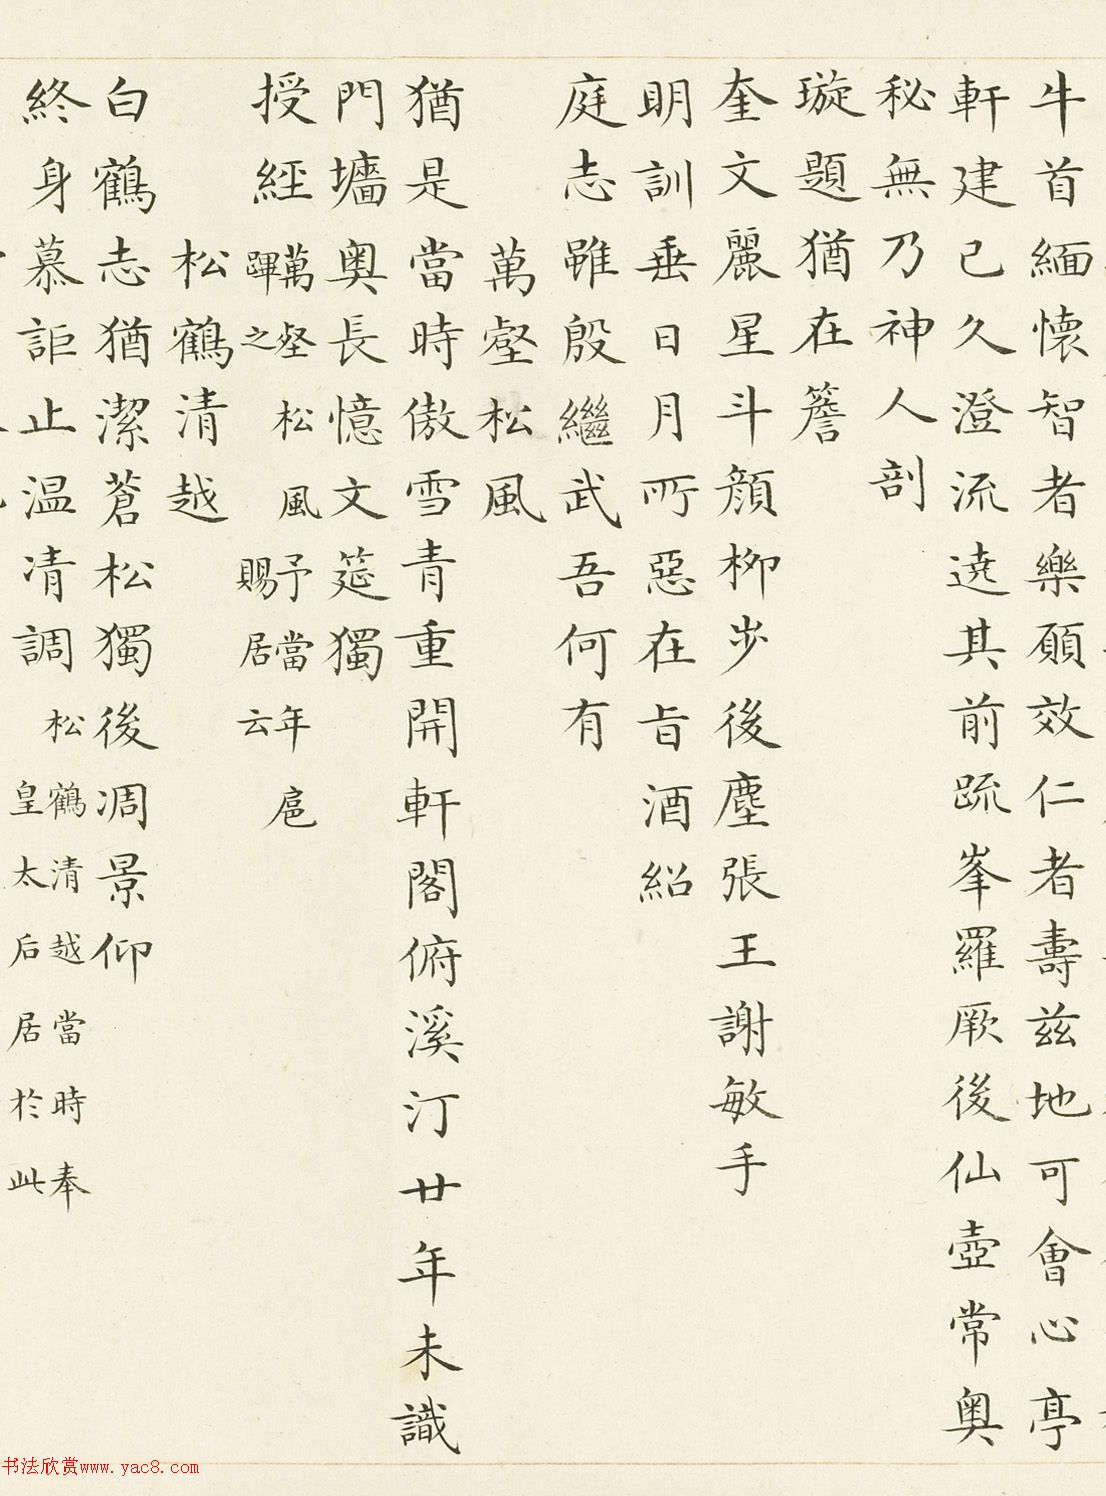 牛首緬懷智者樂願效仁者壽兹地可會心亭
軒建已久澄流遶其前疏峯羅厥後仙壺常奥
秘無乃神人剖
璇題猶在簷
奎文麗星斗顔柳步後塵張王謝敏手
明訓垂日月所惡在旨酒紹
庭志雖殷繼武吾何有
萬壑松風
猶是當時傲雪青重開軒閣俯溪汀廿年未識
門墻奥長憶文筵獨
授經萬壑松風予當年扈
蹕之賜居云
松鶴清越
白鶴志猶潔蒼松獨後凋景仰
終身慕詎止温凊調松鶴清越當時奉
皇太后居於此
书法欣赏www.yac8.com